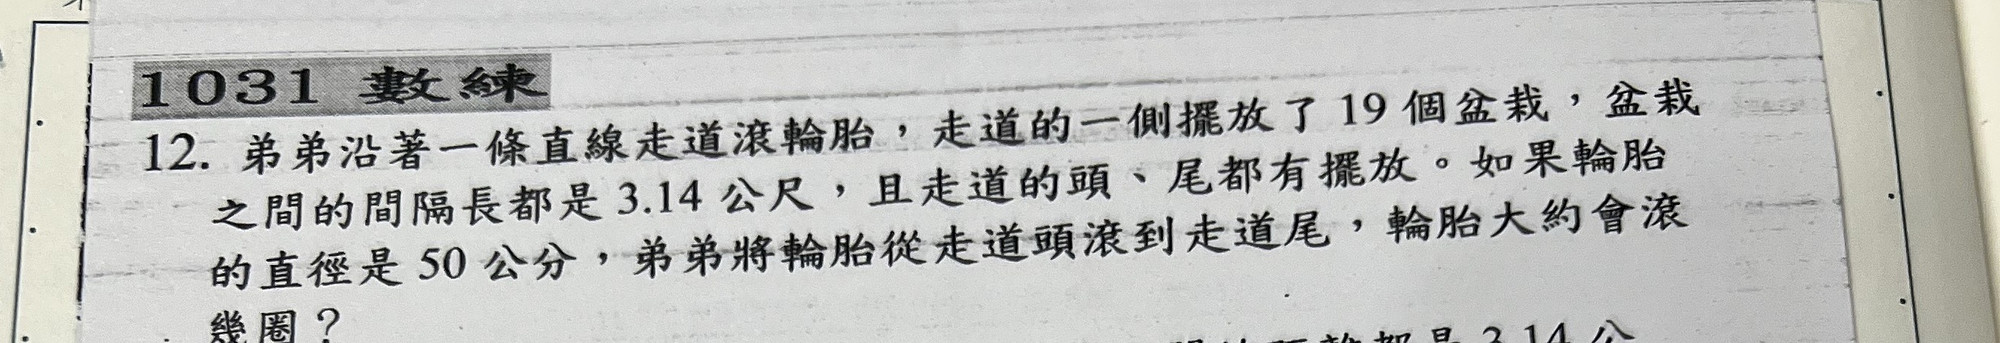 1031 數練
12. 弟弟沿著一條直線走道滾輪胎，走道的一側擺放了 19 個盆栽，盆栽
之間的間隔長都是 3.14 公尺，且走道的頭、尾都有擺放。如果輪胎
的直徑是 50 公分，弟弟將輪胎從走道頭滾到走道尾，輪胎大約會滾
幾圈？
都是 3.14 公